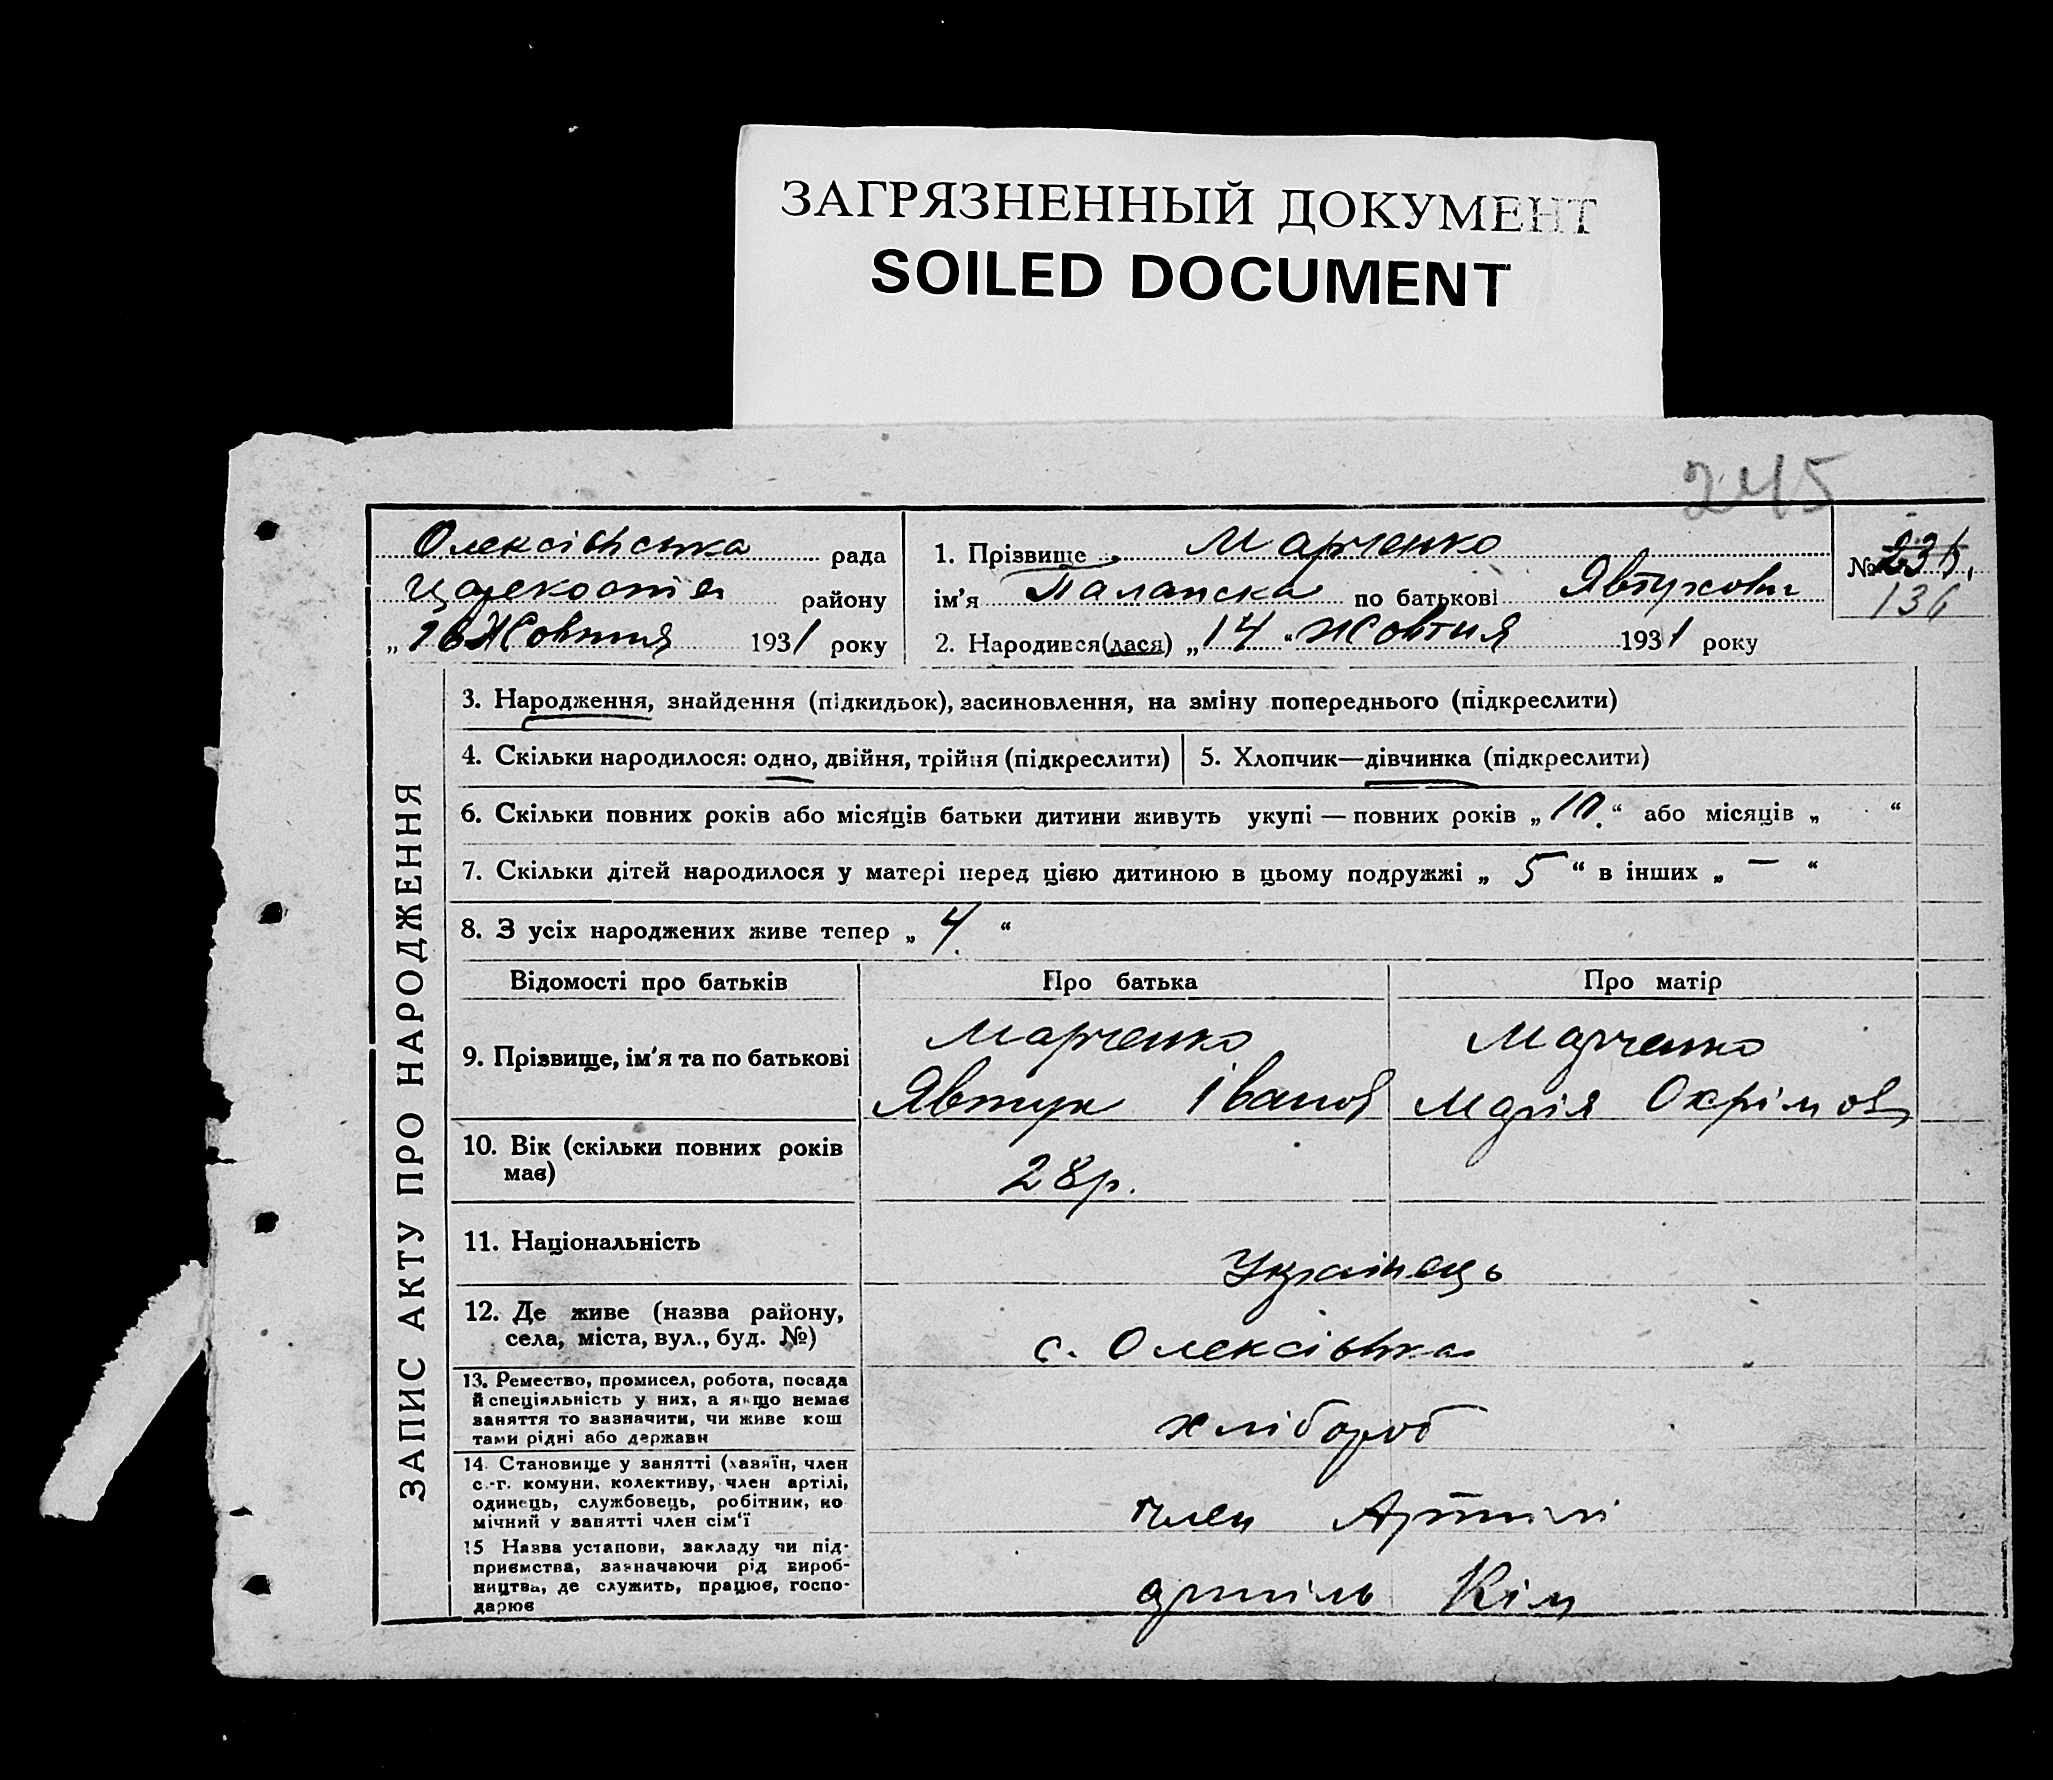 ЗАГРЯЗНЕННЫЙ ДОКУМЕНТ
SOILED DOCUMENT
245
Олексіївська рада
району
„16 Жовтня 1931 року
1. Прізвище Марченко
ім'я Палажка по батькові Явтухович
2. Народився(лася) „14“ Жовтня 1931 року
№ 235.
136
ЗАПИС АКТУ ПРО НАРОДЖЕННЯ
3. Народження, знайдення (підкидьок), засиновлення, на зміну попереднього (підкреслити)
4. Скільки народилося: одно, двійня, трійня (підкреслити)
5. Хлопчик—дівчинка (підкреслити)
6. Скільки повних років або місяців батьки дитини живуть укупі — повних років „10.“ або місяців „ “
7. Скільки дітей народилося у матері перед цією дитиною в цьому подружжі „ 5 “ в інших „ — “
8. З усіх народжених живе тепер „ 4. “
Відомості про батьків
Про батька
Про матір
9. Прізвище, ім'я та по батькові
Марченко
Явтух Іванов
Марченко
Марія Охрімов
10. Вік (скільки повних років
має)
28р.
11. Національність
Українець
12. Де живе (назва району,
села, міста, вул., буд. №)
с. Олексіївка
13. Ремество, промисел, робота, посада
й спеціяльність у них, а якщо немає
заняття то зазначити, чи живе кош
тами рідні або держави
хлібороб
14. Становище у занятті (хазяїн, член
с.-г. комуни, колективу, член артілі,
одинець, службовець, робітник, по
мічний у занятті член сім'ї
член Артілі
15 Назва установи, закладу чи під-
приємства, зазначаючи рід вироб-
ництва, де служить, працює, госпо-
дарює
артіль Кім